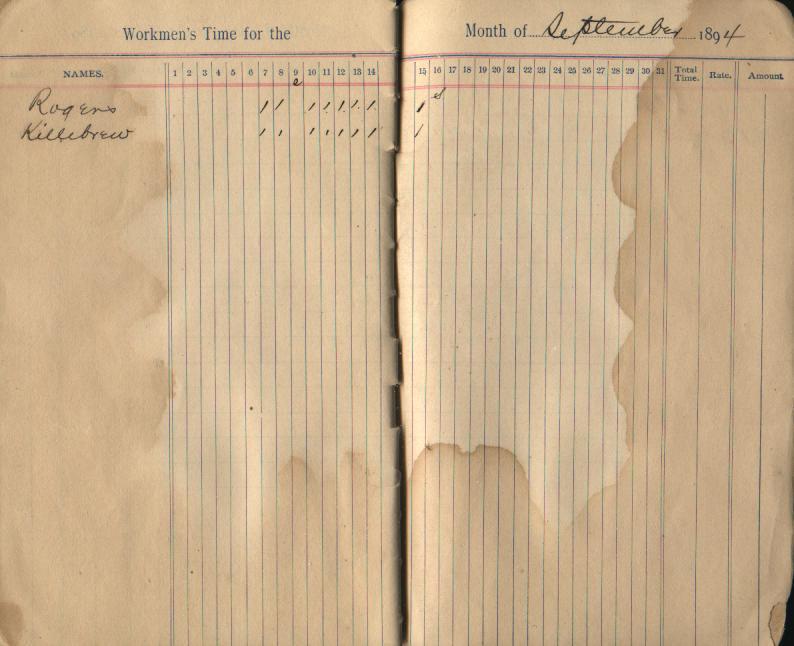 Workmen's Time for the Month of September 1894
NAMES. 1 2 3 4 5 6 7 8 9 10 11 12 13 14 15 16 17 18 19 20 21 22 23 24 25 26 27 28 29 30 31 Total Time. Rate. Amount
Rogers / / / / / / / /
Killebrew / / / / / / / /